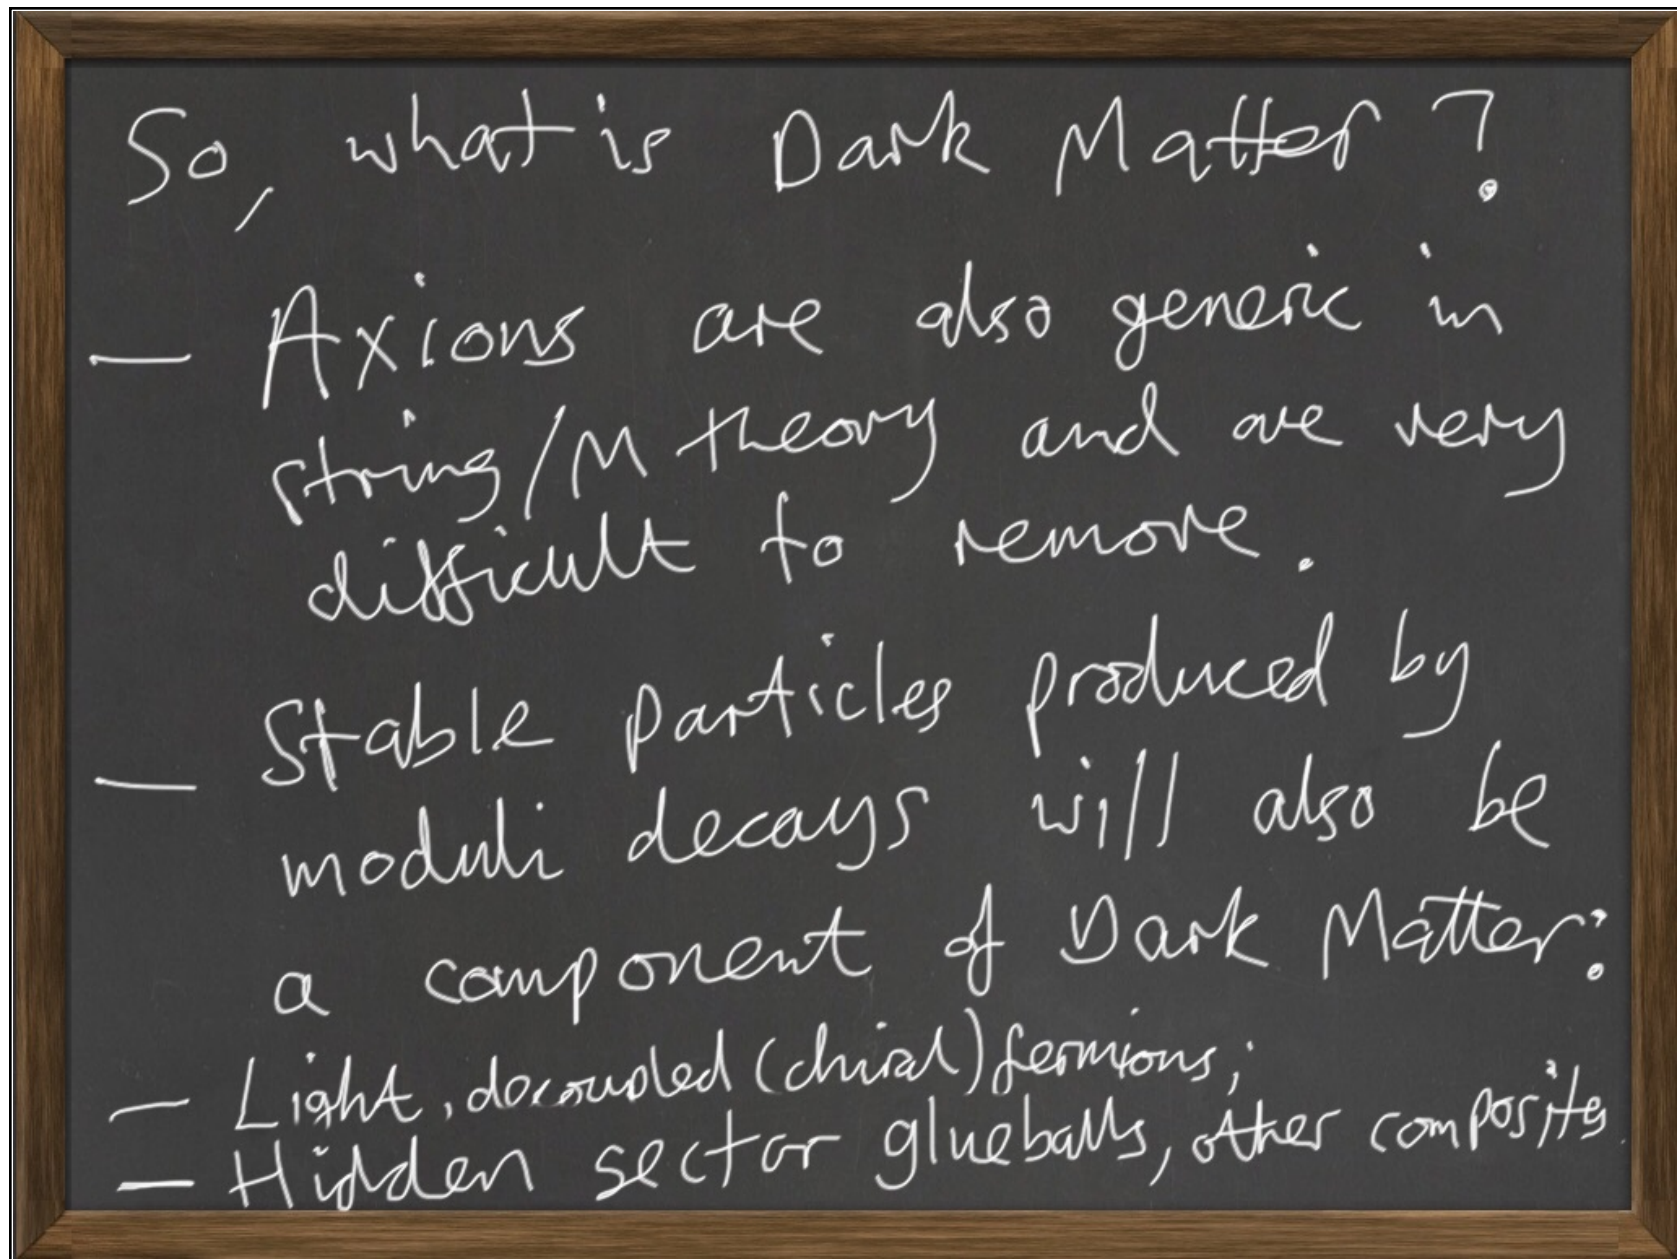 So, what is Dark Matter?
— Axions are also generic in
string/M theory and are very
difficult to remove.
— Stable particles produced by
moduli decays will also be
a component of Dark Matter:
— Light, decoupled (chiral) fermions;
— Hidden sector glueballs, other composites